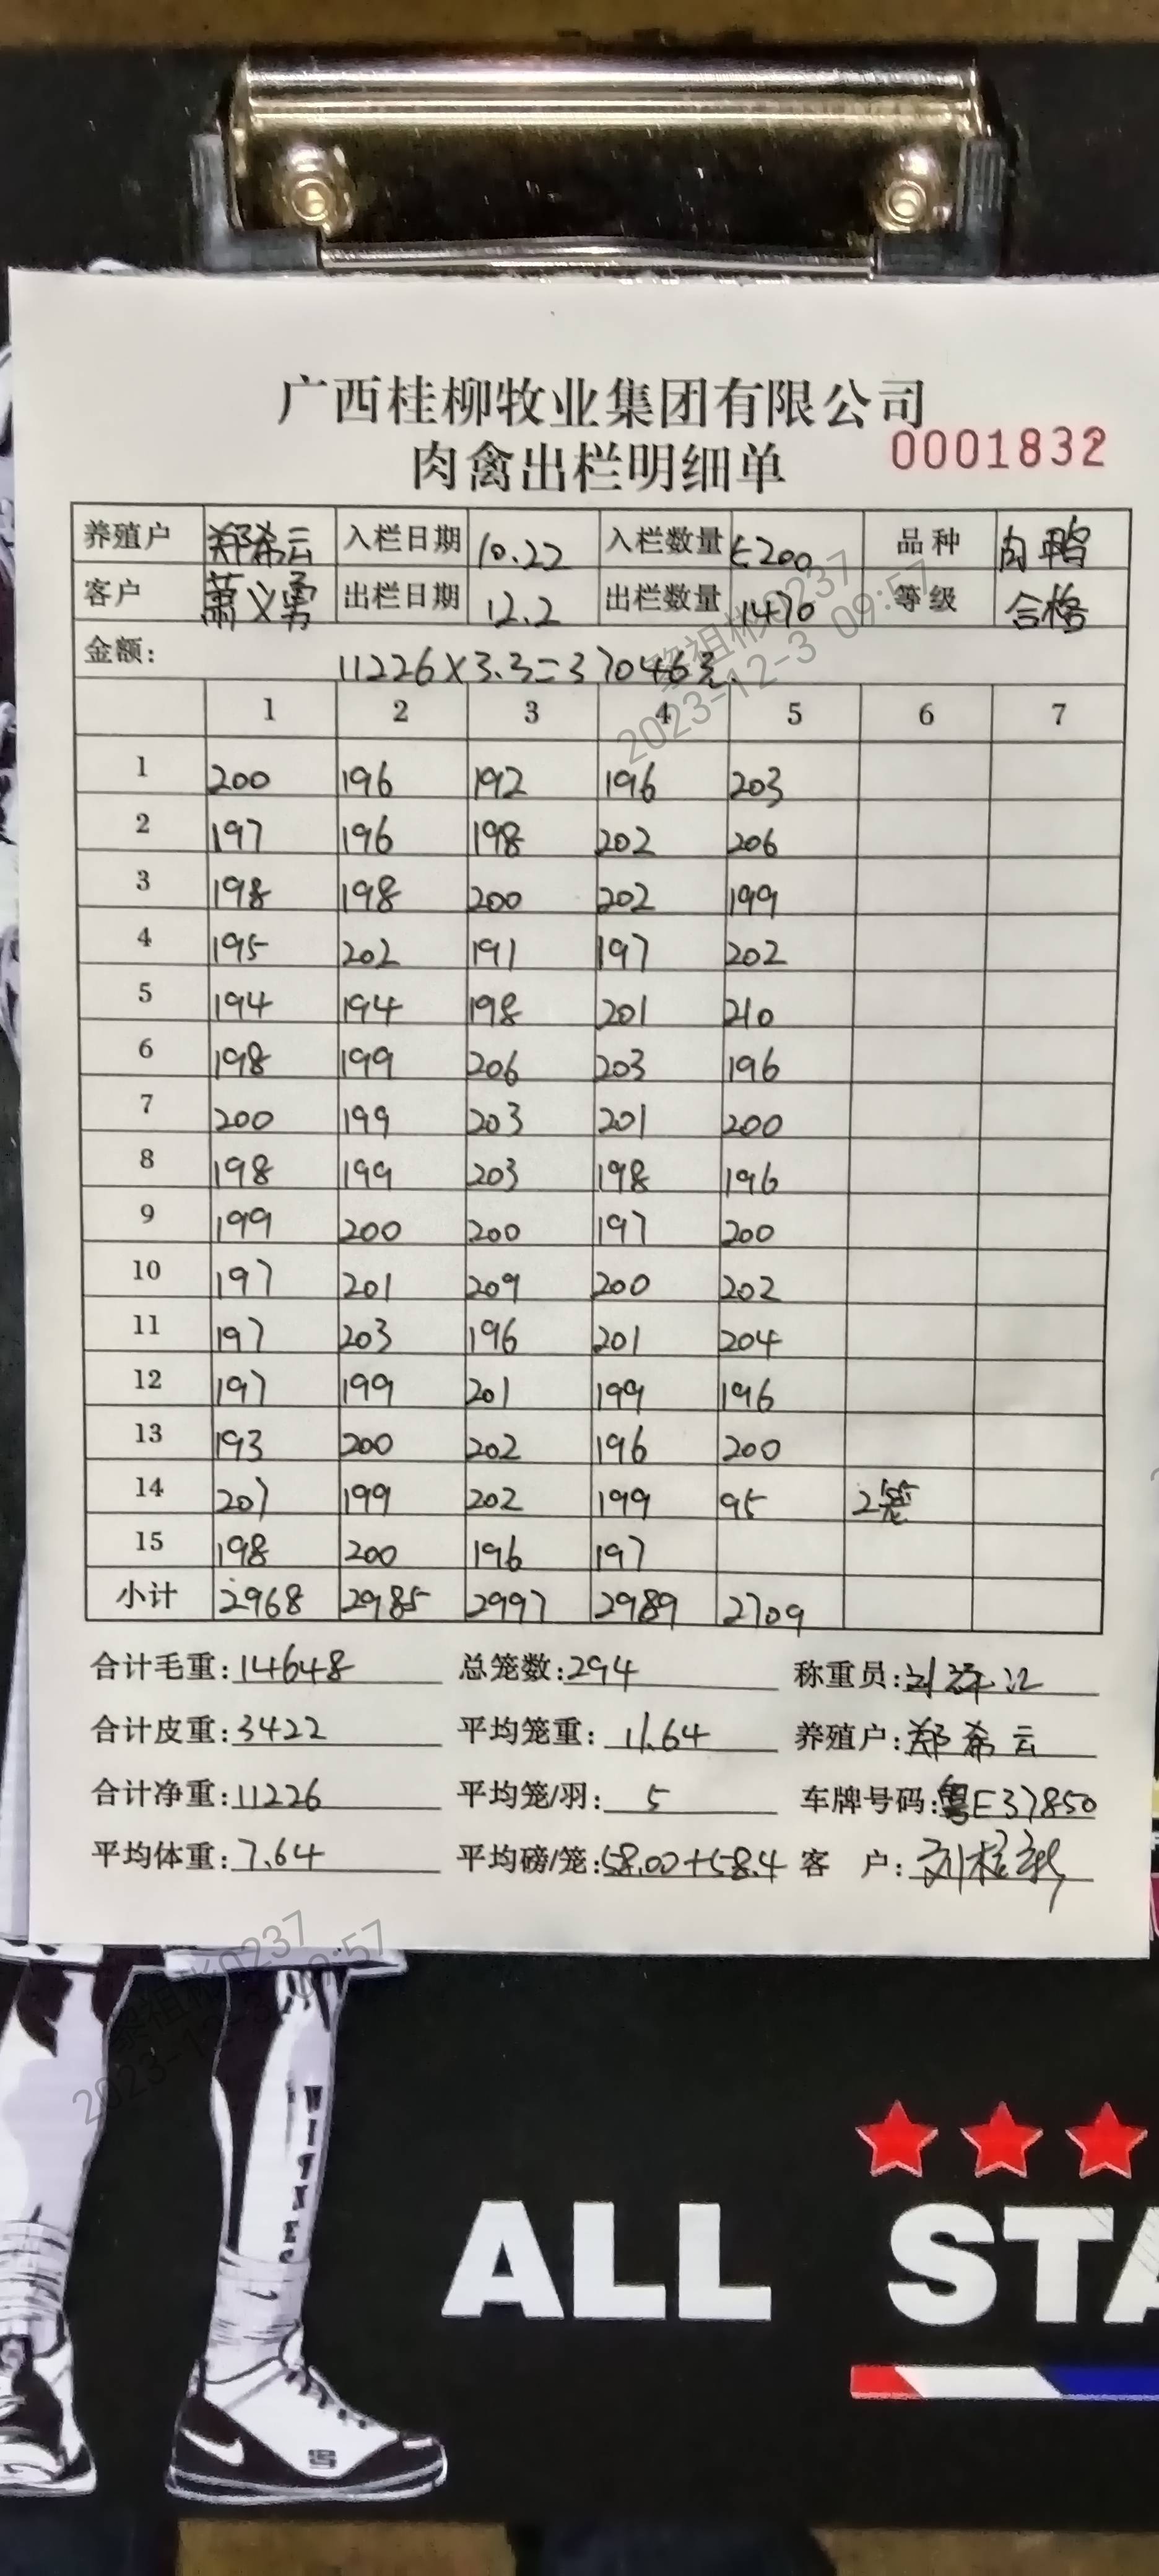 广西桂柳牧业集团有限公司
肉禽出栏明细单 0001832
养殖户 郑希云 入栏日期 10.22 入栏数量 5200 品种 肉鸭
客户 萧义勇 出栏日期 12.2 出栏数量 1470 等级 合格
金额: 11226×3.3=37046元.
1 2 3 4 5 6 7
1 200 196 192 196 203
2 197 196 198 202 206
3 198 198 200 202 199
4 195 202 191 197 202
5 194 194 198 201 210
6 198 199 206 203 196
7 200 199 203 201 200
8 198 199 203 198 196
9 199 200 200 197 200
10 197 201 209 200 202
11 197 203 196 201 204
12 197 199 201 199 196
13 193 200 202 196 200
14 207 199 202 199 95 2笼
15 198 200 196 197
小计 2968 2985 2997 2989 2709
合计毛重:14648 总笼数:294 称重员:
合计皮重:3422 平均笼重:11.64 养殖户:郑希云
合计净重:11226 平均笼/羽:5 车牌号码:粤E37850
平均体重:7.64 平均磅/笼:58.00+58.4 客 户:
黎祖彬0237
2023-12-3 09:57
黎祖彬0237
2023-12-3 09:57
ALL STA